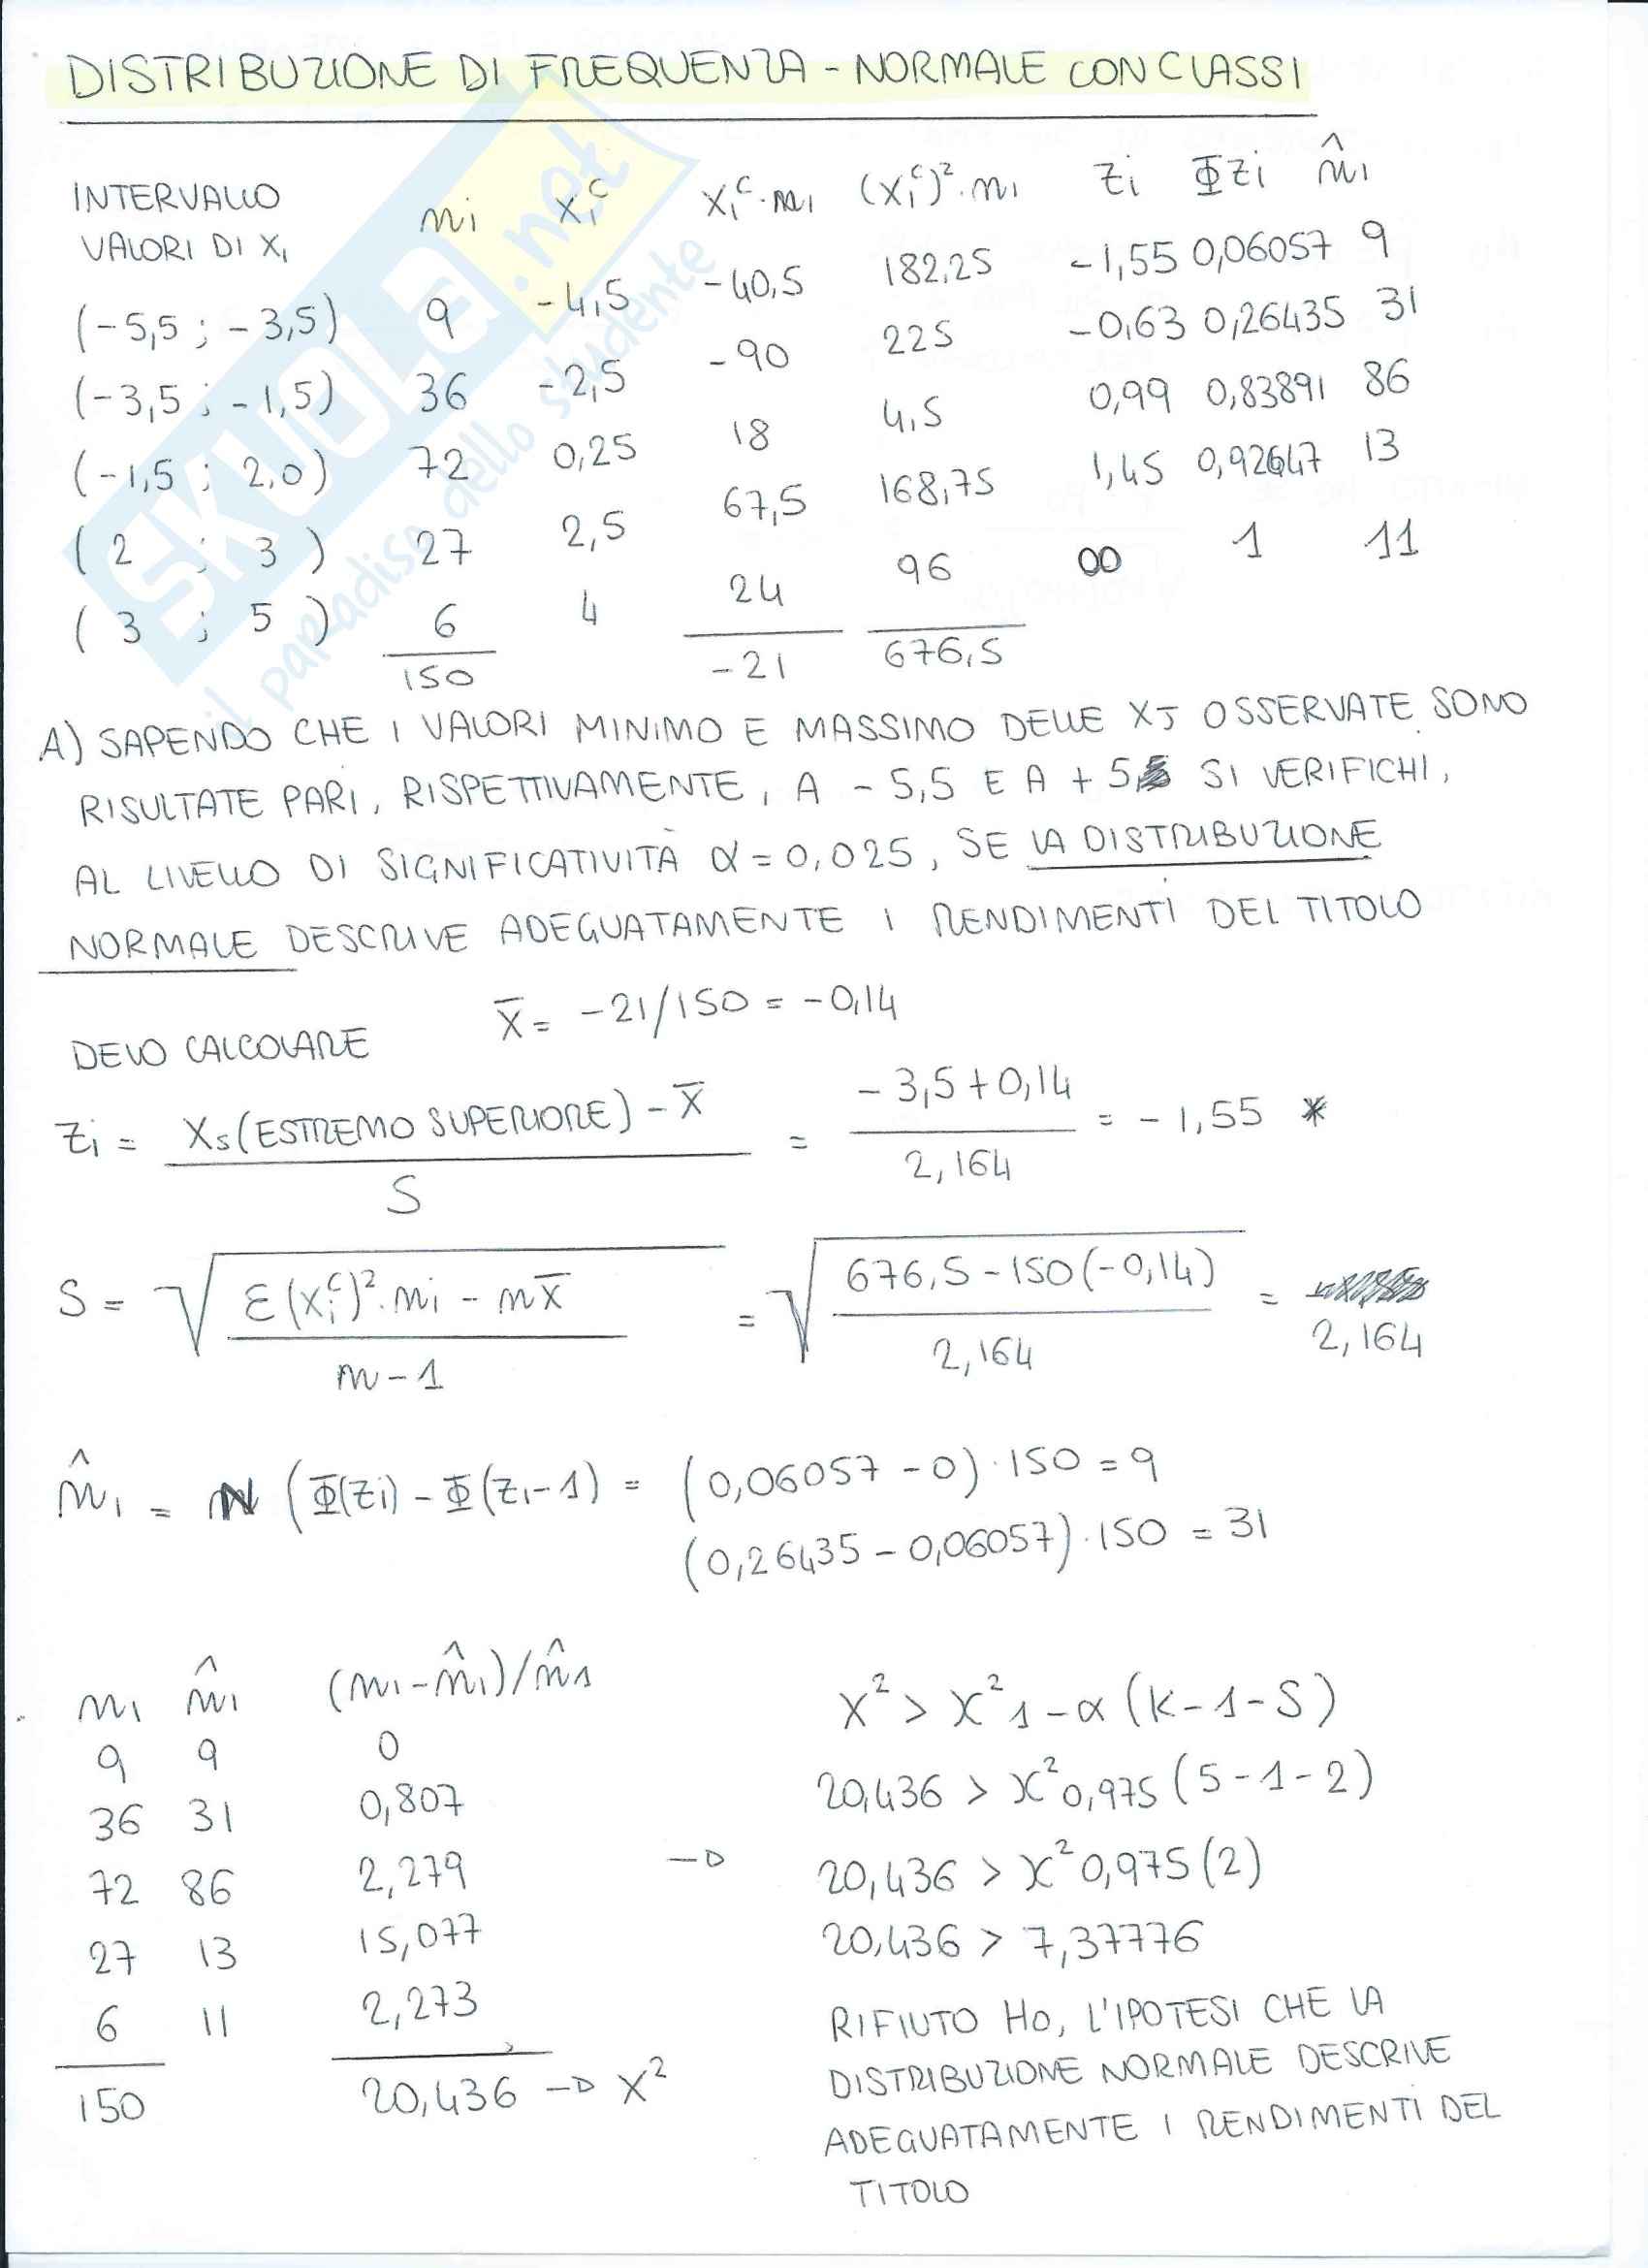 DISTRIBUZIONE DI FREQUENZA - NORMALE CON CLASSI
INTERVALLO VALORI DI Xi ni xi^c xi^c·ni (xi^c)²·ni zi Φzi n̂i
(-5,5 ; -3,5) 9 -4,5 -40,5 182,25 -1,55 0,06057 9
(-3,5 ; -1,5) 36 -2,5 -90 225 -0,63 0,26435 31
(-1,5 ; 2,0) 72 0,25 18 4,5 0,99 0,83891 86
( 2 ; 3 ) 27 2,5 67,5 168,75 1,45 0,92647 13
( 3 ; 5 ) 6 4 24 96 ∞ 1 11
150 -21 676,5
A) SAPENDO CHE I VALORI MINIMO E MASSIMO DELLE XJ OSSERVATE SONO
RISULTATE PARI, RISPETTIVAMENTE, A -5,5 E A +5 SI VERIFICHI,
AL LIVELLO DI SIGNIFICATIVITÀ α = 0,025, SE LA DISTRIBUZIONE
NORMALE DESCRIVE ADEGUATAMENTE I RENDIMENTI DEL TITOLO
DEVO CALCOLARE x̄ = -21/150 = -0,14
zi = Xs (ESTREMO SUPERIORE) - x̄ / S = -3,5 + 0,14 / 2,164 = -1,55 *
S = √ Ɛ(xi^c)²·ni - nx̄ / n-1 = √ 676,5 - 150(-0,14) / 2,164 = 2,164
n̂i = N (Φ(zi) - Φ(zi-1) = (0,06057 - 0)·150 = 9
(0,26435 - 0,06057)·150 = 31
ni n̂i (ni - n̂i)/n̂1
9 9 0
36 31 0,807
72 86 2,279
27 13 15,077
6 11 2,273
150 20,436 → X²
→
X² > X²1-α (K-1-S)
20,436 > X²0,975 (5-1-2)
20,436 > X²0,975 (2)
20,436 > 7,37776
RIFIUTO H0, L'IPOTESI CHE LA
DISTRIBUZIONE NORMALE DESCRIVE
ADEGUATAMENTE I RENDIMENTI DEL
TITOLO
SKUOLA.net
il paradiso dello studente